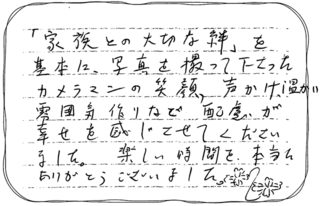 「家族との大切な絆」を
基本に、写真を撮って下さった
カメラマンの笑顔、声かけ、温かい
雰囲気作りなど配慮が
幸せを感じさせてください
ました。 楽しい時間を、本当に
ありがとうございました。